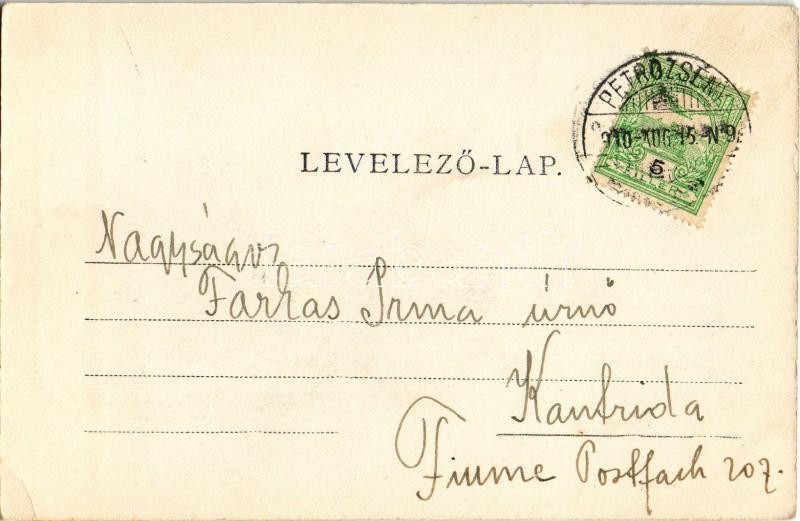 PETROZSÉNY
910 AUG 15 N9
5
FILLÉR
LEVELEZŐ-LAP.
Nagyságos
Farkas Irma úrnő
Kantrida
Fiume Postfach 207.